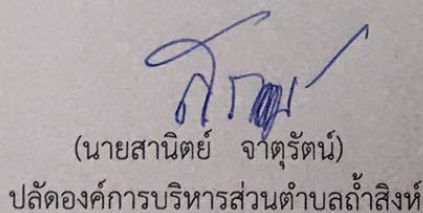 (นายสานิตย์ จาตุรัตน์)
ปลัดองค์การบริหารส่วนตำบลถ้ำสิงห์